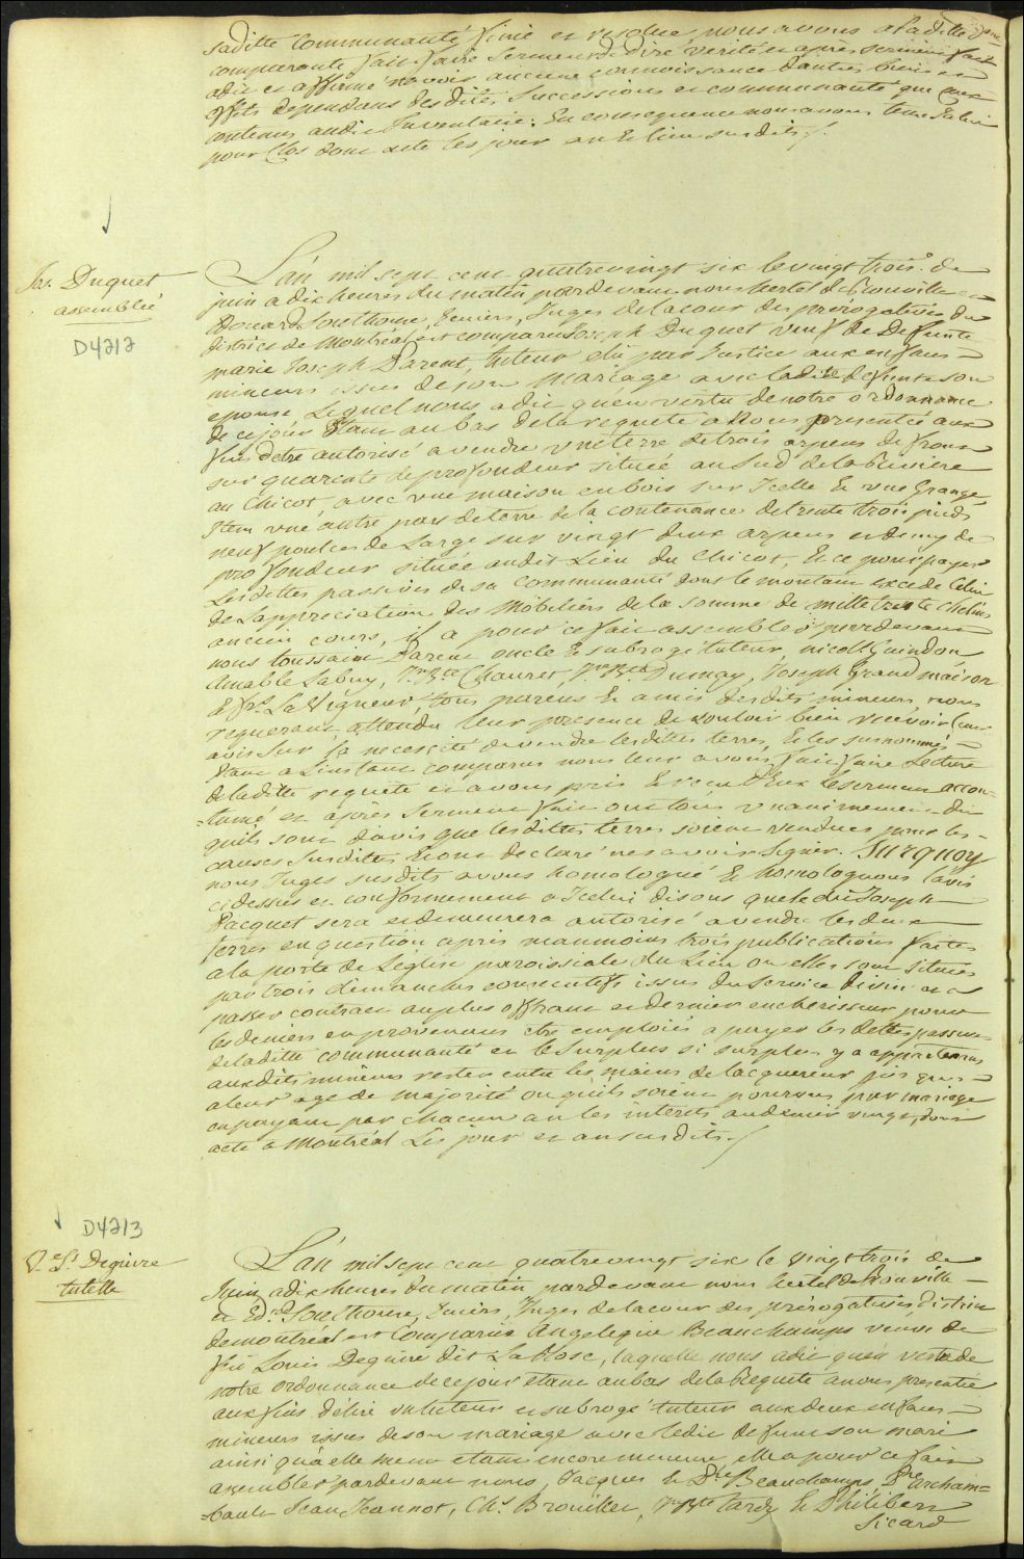 sa ditte Communauté finie et resolue nous avons a la ditte
comparante fait faire serment de dire verité et après serment fait
a dit et affirmé n'avoir aucune connoissance d'autres biens et
effets dependans desdites Successions et communauté que ceux
contenus audit Inventaire. En consequence nous avons tenu Icelui
pour Clos dont acte les jour an & lieu susdits
Jos. Duquet
assemblée
D4212
L'an mil sept cent quatrevingt six le vingt trois de
juin a dix heures du matin pardevant nous hertel de Rouville
Edouard Southouse, Ecuiers, Juges de la cour des prérogatives du
district de Montreal est comparu Joseph Duquet veuf de Defunte
marie Joseph Parent, tuteur élu par Justice aux enfans
mineurs issus de son mariage avec ladite defunte son
epouse Lequel nous a dit qu'en vertu de notre ordonnance
de ce jour Etant au bas de la requete a Nous presentée aux
fins d'etre autorisé a vendre une terre de trois arpens de front
sur quarante de profondeur située au Sud de la Riviere
au Chicot, avec une maison en bois sur Icelle & une Grange
Item une autre part de terre de la contenance de trente trois pieds
neuf pouces de Large sur vingt deux arpens et demy de
profondeur située audit Lieu du Chicot, & ce pour payer
Les dettes passives de sa Communauté dont le montant excede Celui
de L'appreciation des Mobiliers de la somme de mille trente chelins
ancien cours, il a pour ce fait assemblé pardevant
nous toussaint Parent oncle & subrogé tuteur, nicolas Guindon
Amable Labuy, Jn. Bte. Chauret, Jn. Bte. Dumay, Joseph Grandmaison
& frs. La Vigueur, tous parens & amis desdits mineurs, nous
requerant attendu leur presence de vouloir bien recevoir leur
avis sur la necessité de vendre lesdittes terres, & les susnommés
Etant a L'instant comparus nous leur avons fait faire Lecture
de laditte requete et avons pris & recu d'Eux le serment accou-
-tumé et après serment fait ont tous unanimement dit
qu'ils sont d'avis que lesdittes terres soient vendues pour les
causes susdites & ont declaré ne savoir Signer. Surquoy
nous Juges susdits avons homologué & homologuons l'avis
cy dessus et conformement a Icelui disons que ledit Joseph
Pacquet sera et demeurera autorisé a vendre les deux
terres en question après neanmoins trois publications faites
a la porte de L'eglise paroissiale du Lieu ou elles sont Situées
par trois dimanches consecutifs issue du Service divin et a
passer contract au plus offrant et dernier encherisseur pour
les deniers en provenans etre emploiés a payer les dettes passives
de laditte communauté et le surplus si surplus y a appartenans
auxdits mineurs rester entre les mains de l'acquereur jusques
a leur age de majorité ou qu'ils soient pourvus par mariage
en payant par chacun an les interets au denier vingt, dont
acte a Montréal Les jour et an susdits
D4213
Ve. Ls. Deguire
tutelle
L'an mil sept cent quatrevingt six le vingt trois de
Juin a dix heures du matin pardevant nous hertel de Rouville
et Edrd. Southouse, Ecuiers, Juges de la cour des prérogatives, district
de montréal est Comparue Angelique Beauchamps veuve de
feu Louis Deguire dit LaRose, laquelle nous a dit qu'en vertu de
notre ordonnance de ce jour etant au bas de la Requete a nous presentée
aux fins d'elire un tuteur et subrogé tuteur aux deux enfans
mineurs issus de son mariage avec ledit defunt son mari
ainsi qu'a elle meme etant encore mineure elle a pour ce fait
assembler pardevant nous, Jacques & Bte. Beauchamps, Pre. archam-
bault Jean Jeannot, Chs. Brouillet, Jn. Bte. tardy & Philibert
Sicard